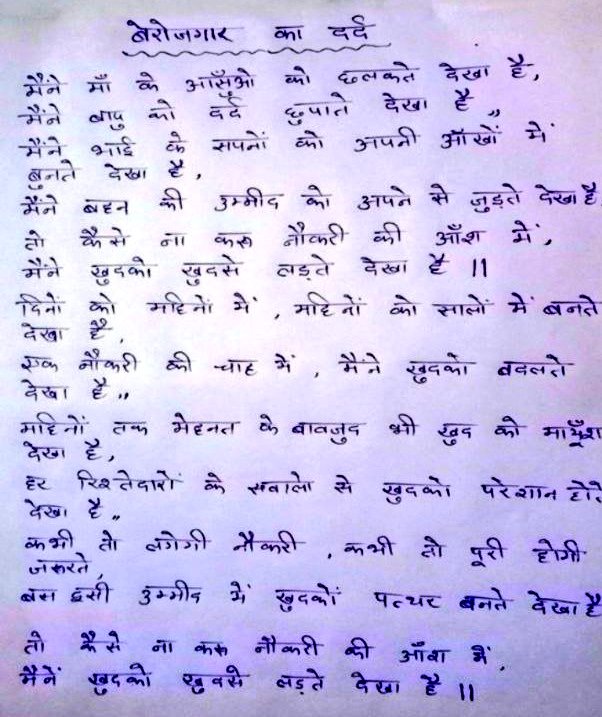 बेरोजगार का दर्द
मैंने माँ के आँसुओ को छलकते देखा है,
मैंने बापु को दर्द छुपाते देखा है,,
मैंने भाई के सपनों को अपनी आँखों में
बुनते देखा है,
मैंने बहन की उम्मीद को अपने से जुड़ते देखा है
तो कैसे ना करू नौकरी की आँश में,
मैंने खुदको खुदसे लड़ते देखा है ॥
दिनों को महिनों में, महिनों को सालों में बनते
देखा है,
एक नौकरी की चाह में, मैंने खुदको बदलते
देखा है,,
महिनों तक मेहनत के बावजुद भी खुद को मायूँश
देखा है,
हर रिश्तेदारों के सवालो से खुदको परेशान होते
देखा है,,
कभी तो लगेगी नौकरी, कभी तो पूरी होगी
जरूरते,
बस इसी उम्मीद में खुदकों पत्थर बनते देखा है
तो कैसे ना करू नौकरी की आँश में,
मैनें खुदको खुदसे लड़ते देखा है ॥